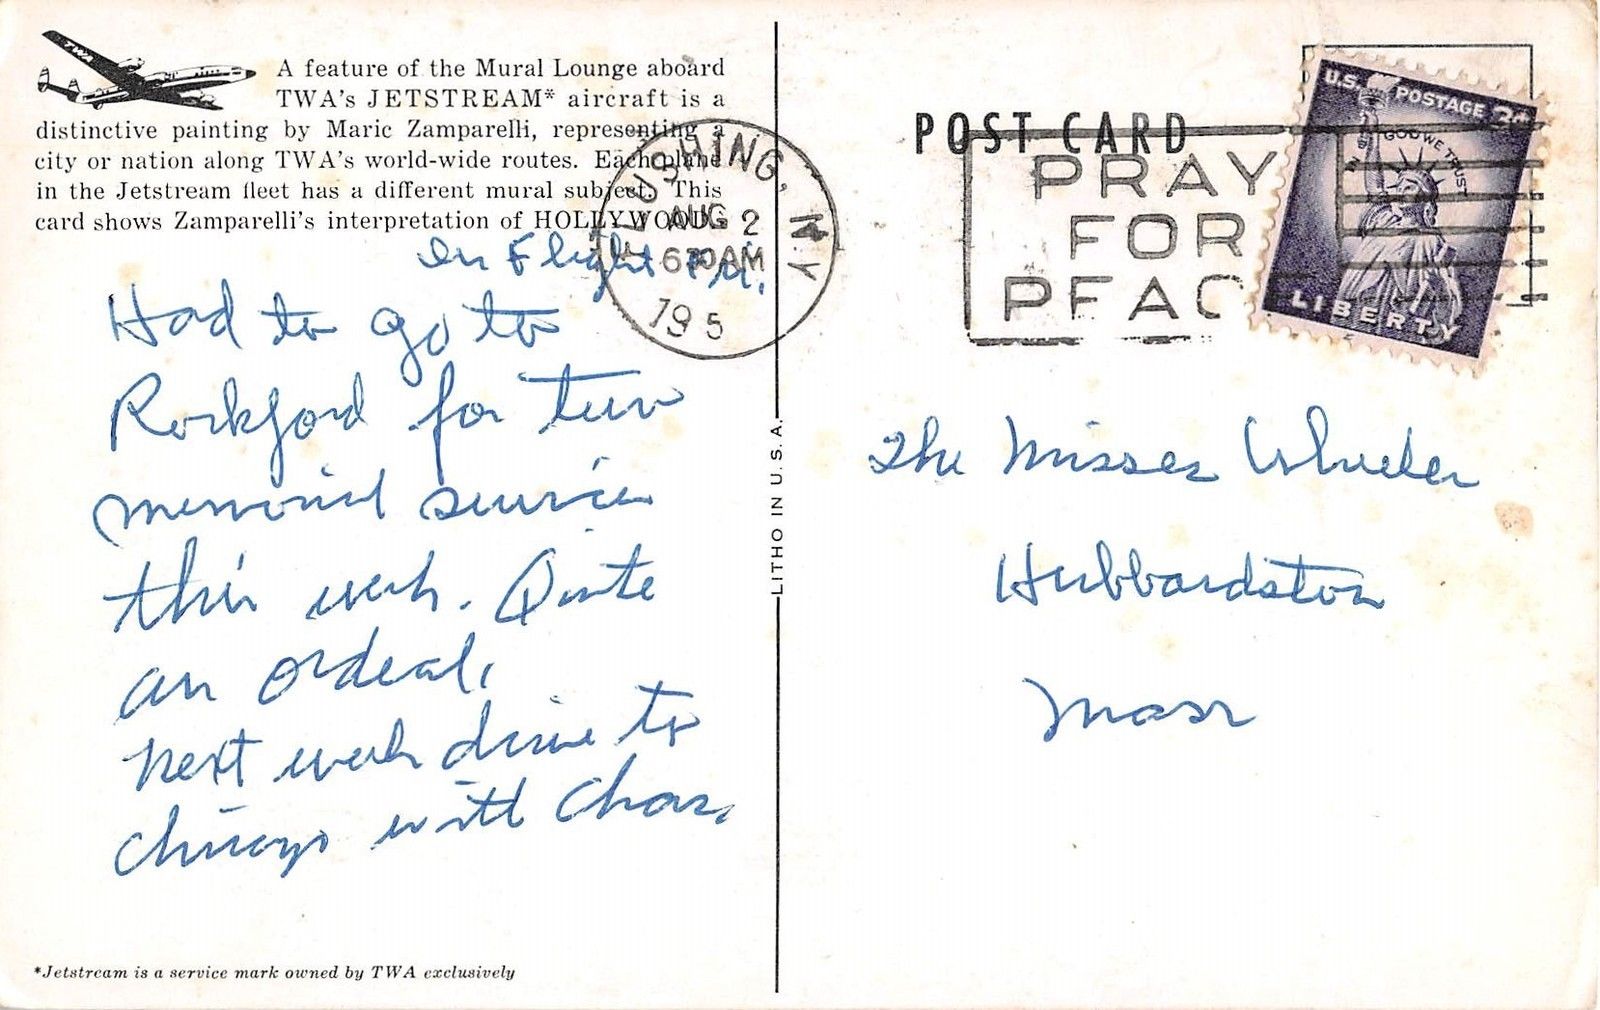 TWA
A feature of the Mural Lounge aboard
TWA's JETSTREAM* aircraft is a
distinctive painting by Maric Zamparelli, representing a
city or nation along TWA's world-wide routes. Each plane
in the Jetstream fleet has a different mural subject. This
card shows Zamparelli's interpretation of HOLLYWOOD.
In Flight Fri.
Had to go to
Rockford for two
memorial services
this week. Quite
an ordeal,
Next week drive to
Chicago with Chas.
*Jetstream is a service mark owned by TWA exclusively
LITHO IN U.S.A.
FLUSHING, N.Y.
AUG 2
630AM
195
POST CARD
PRAY
FOR
PEAC
U.S. POSTAGE 3¢
IN GOD WE TRUST
LIBERTY
The Misses Wheeler
Hubbardston
Mass